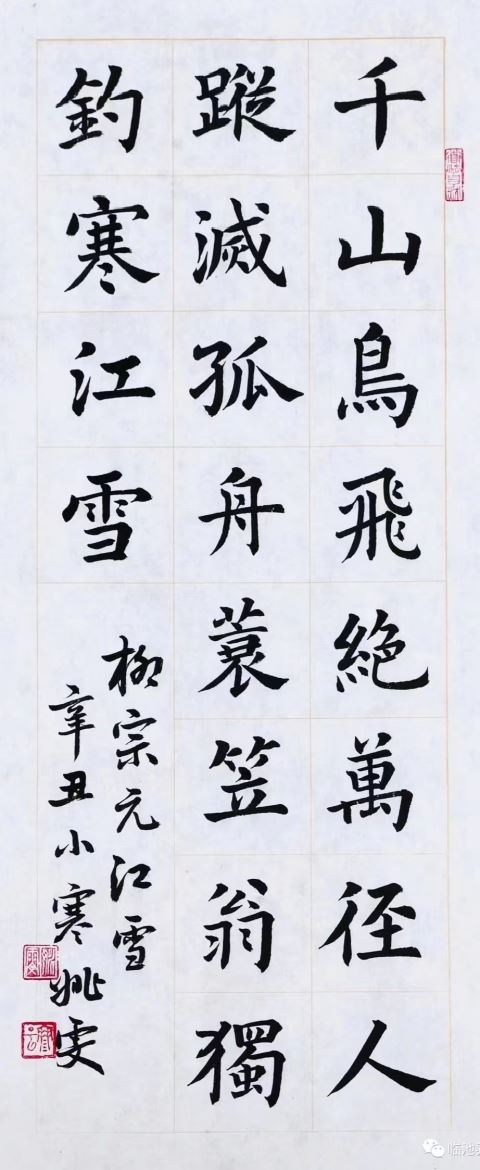 千山鳥飛絶萬径人
蹤滅孤舟蓑笠翁獨
釣寒江雪
柳宗元江雪
辛丑小寒姚雯
临池